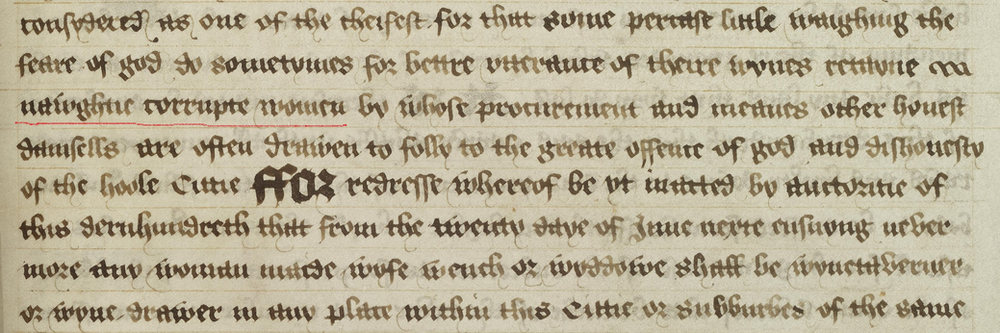 consydered as one of the cheifest for that some percase little waighing the
feare of god do sometymes for bettre vtterance of theire wynes retayne
nawghtie corrupte women by whose procurement and meanes other honest
damsells are often drawen to folly to the greate offence of god and dishonesty
of the hoole Cittie ffor redresse whereof be yt inacted by auctoritie of
this dernhundreth that from the twenty daye of June nexte ensuyng never
more any woman maide wyfe wench or wyddowe shall be wynetaberner
or wyne drawer in any place within this Cittie or subburbes of the same